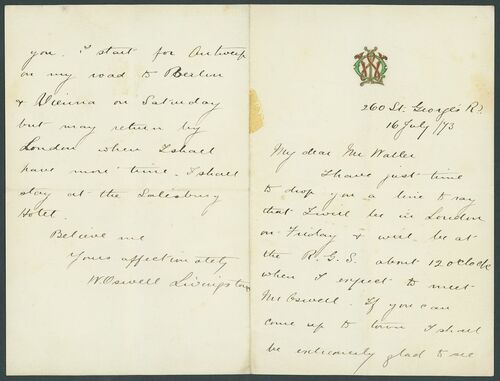 260 St. George's Rd.
16 July /73
My dear Mr Waller
I have just time
to drop you a line to say
that I will be in London
on Friday & will be at
the R. G. S. about 12 o'clock
when I expect to meet
Mr Oswell. If you can
come up to town I shall
be extremely glad to see
you. I start for Antwerp
on my road to Berlin
& Vienna on Saturday
but may return by
London when I shall
have more time. I shall
stay at the Salesbury
Hotel.
Believe me
Yours affectionately
W. Oswell Livingstone